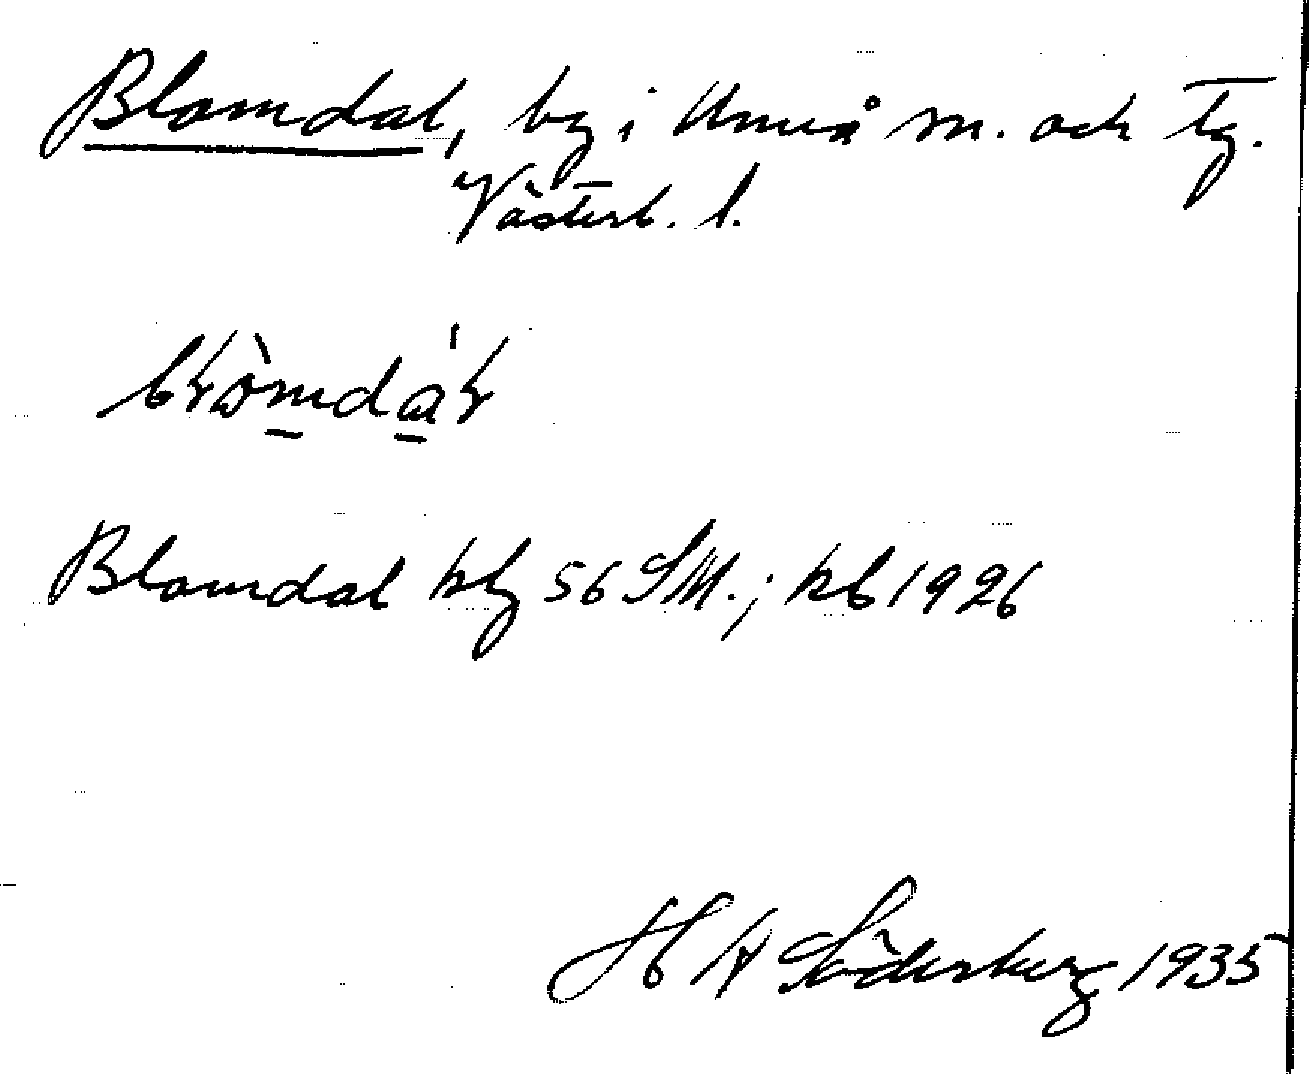 Blomdal, by i Umeå sn. och tg.
Västerb. l.
Blomdal kbg 56 SM.; kb 1926
H A Söderberg 1935